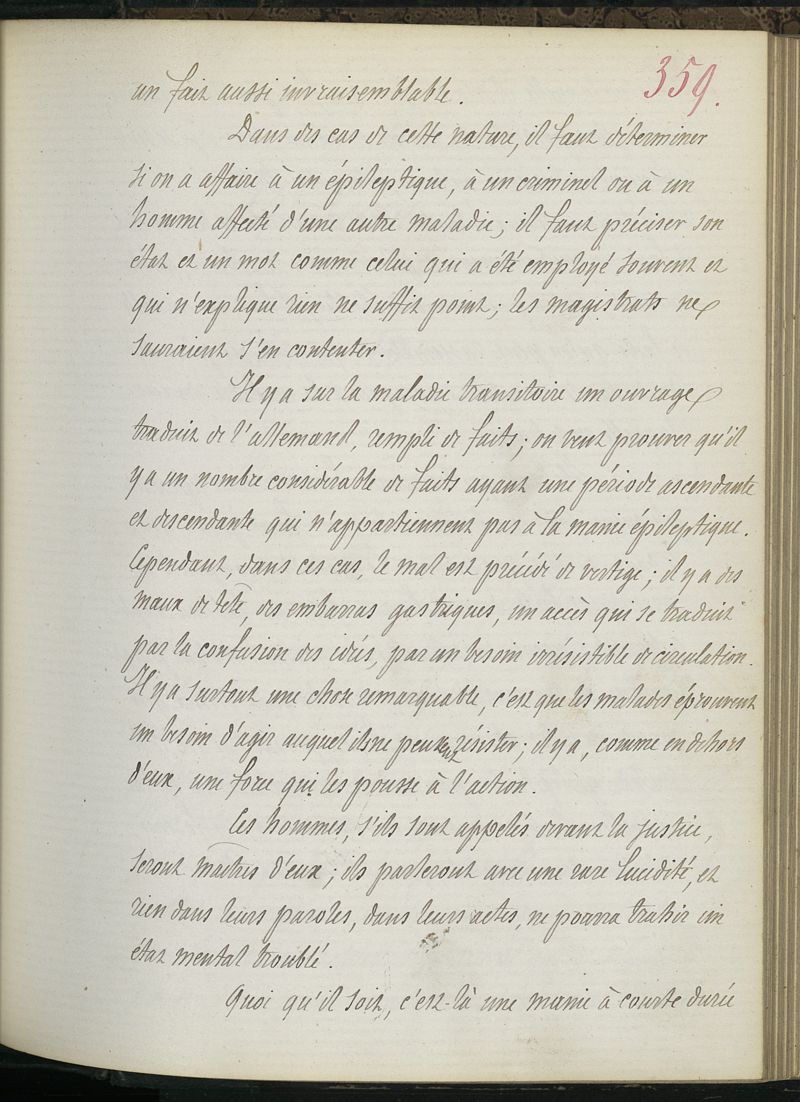 359.
un fait aussi invraisemblable.
Dans des cas de cette nature, il faut déterminer
si on a affaire à un épileptique, à un criminel ou à un
homme affecté d'une autre maladie; il faut préciser son
état et un mot comme celui qui a été employé souvent et
qui n'explique rien ne suffit point; les magistrats ne
sauraient s'en contenter.
Il y a sur la maladie transitoire un ouvrage
traduit de l'allemand, rempli de faits; on veut prouver qu'il
y a un nombre considérable de faits ayant une période ascendante
et descendante qui n'appartiennent pas à la manie épileptique.
Cependant, dans ces cas, le mal est précédé de vertige; il y a des
maux de tête, des embarras gastriques, un accès qui se traduit
par la confusion des idées, par un besoin irrésistible de circulation.
Il y a surtout une chose remarquable, c'est que les malades éprouvent
un besoin d'agir auquel ils ne peuvent résister; il y a, comme en dehors
d'eux, une force qui les pousse à l'action.
Ces hommes, s'ils sont appelés devant la justice,
seront maîtres d'eux; ils parleront avec une rare lucidité, et
rien dans leurs paroles, dans leurs actes, ne pourra trahir un
état mental troublé.
Quoi qu'il soit, c'est-là une manie à courte durée